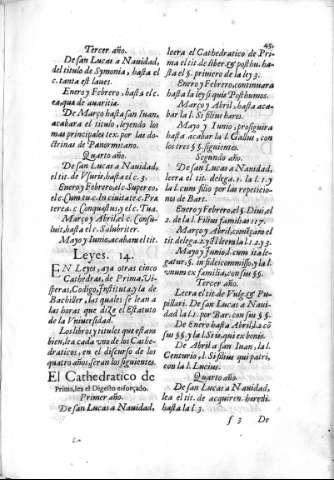 45.
Tercer año.
De san Lucas a Nauidad,
del titulo de Symonia, hasta el
c. tanta est laues.
Enero y Febrero, hasta el c.
ea quæ de auaritia.
De Março hasta san Iuan,
acabara el titulo, leyendo los
mas principales tex. por las do-
ctrinas de Panormitano.
Quarto año.
De san Lucas a Nauidad, el
tit. de Vsuris, hasta el c. 3.
Enero y Febrero, el c. Super eo,
el c. Cum tu c. In ciuitate c. Præ
terea c. Conquestus, y el c. Tua.
Março y Abril el c. Consu-
luit, hasta el c. Salubriter.
Mayo y Iunio, acabara el tit.
Leyes. 14.
EN Leyes, aya otras cinco
Cathedras, de Prima, Vi-
speras, Codigo, Instituta, y la de
Bachiller, las quales se lean a
las horas que dize el Estatuto
de la Vniuersidad.
Los libros y titulos que estara
bien, lea cada vno de los Cathe-
draticos, en el discurso de los
quatro años, seran los siguientes.
El Cathedratico de
Prima, lea el Digesto esforçado.
Primer año.
De san Lucas a Nauidad,
leera el Cathedratico de Pri-
ma el tit. de liber. & posthu. ha-
sta el §. primero de la ley 3.
Enero y Febrero, continuara
hasta la ley si quis Posthumos.
Março y Abril, hasta aca-
bar la l. Si filius hæres.
Mayo y Iunio, prosiguira
hasta acabar la l. Gallus, con
los tres §§. siguientes.
Segundo año.
De san Lucas a Nauidad,
leera el tit. delega. 1. la l. 1. y
la l. cum filio por las repeticio-
nes de Bart.
Enero y Febrero, el §. Diui, el
2. de la l. Filius familias 117.
Março y Abril, començara el
tit. delega. 2. y se leera la l. 1. 2. 3.
Mayo y Iunio, l. cum ita le-
gatur. §. in fideicommisso, y la l.
vnum ex familia, con sus §§.
Tercer año.
Leera el tit. de Vulg. & Pu-
pillari. De san Lucas a Naui-
dad la l. 1. por Bar. con sus §§.
De Enero hasta Abril, l. 2 cõ
sus §§. y la l. Si is qui ex bonis.
De Abril a san Iuan, la l.
Centurio, l. Si filius qui patri,
con la l. Lucius.
Quarto año.
De san Lucas a Nauidad,
lea el tit. de acquiren. heredi.
hasta la l. 3.
f 3 De